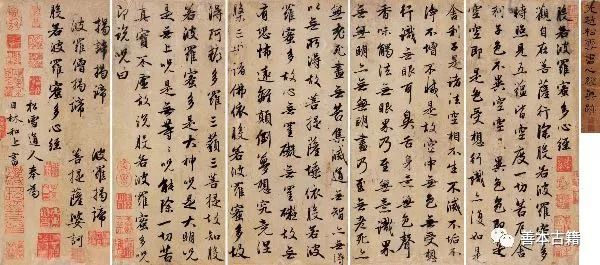 元趙松雪書心經真跡
般若波羅蜜多心經
觀自在菩薩行深般若波羅蜜多
時照見五蘊皆空度一切苦厄
舍利子色不異空空不異色色即是
空空即是色受想行識亦復如是
舍利子是諸法空相不生不滅不垢不
淨不增不減是故空中無色無受想
行識無眼耳鼻舌身意無色聲
香味觸法無眼界乃至無意識界
無無明亦無無明盡乃至無老死亦
無老死盡無苦集滅道無智亦無得
以無所得故菩提薩埵依般若波
羅蜜多故心無罣礙無罣礙故無
有恐怖遠離顛倒夢想究竟涅
槃三世諸佛依般若波羅蜜多故
得阿耨多羅三藐三菩提故知般
若波羅蜜多是大神咒是大明咒
是無上咒是無等等咒能除一切苦
真實不虛故說般若波羅蜜多咒
即說咒曰
揭諦揭諦 波羅揭諦
波羅僧揭諦 菩提薩婆訶
般若波羅蜜多心經
松雪道人奉為
日林和上書
善本古籍